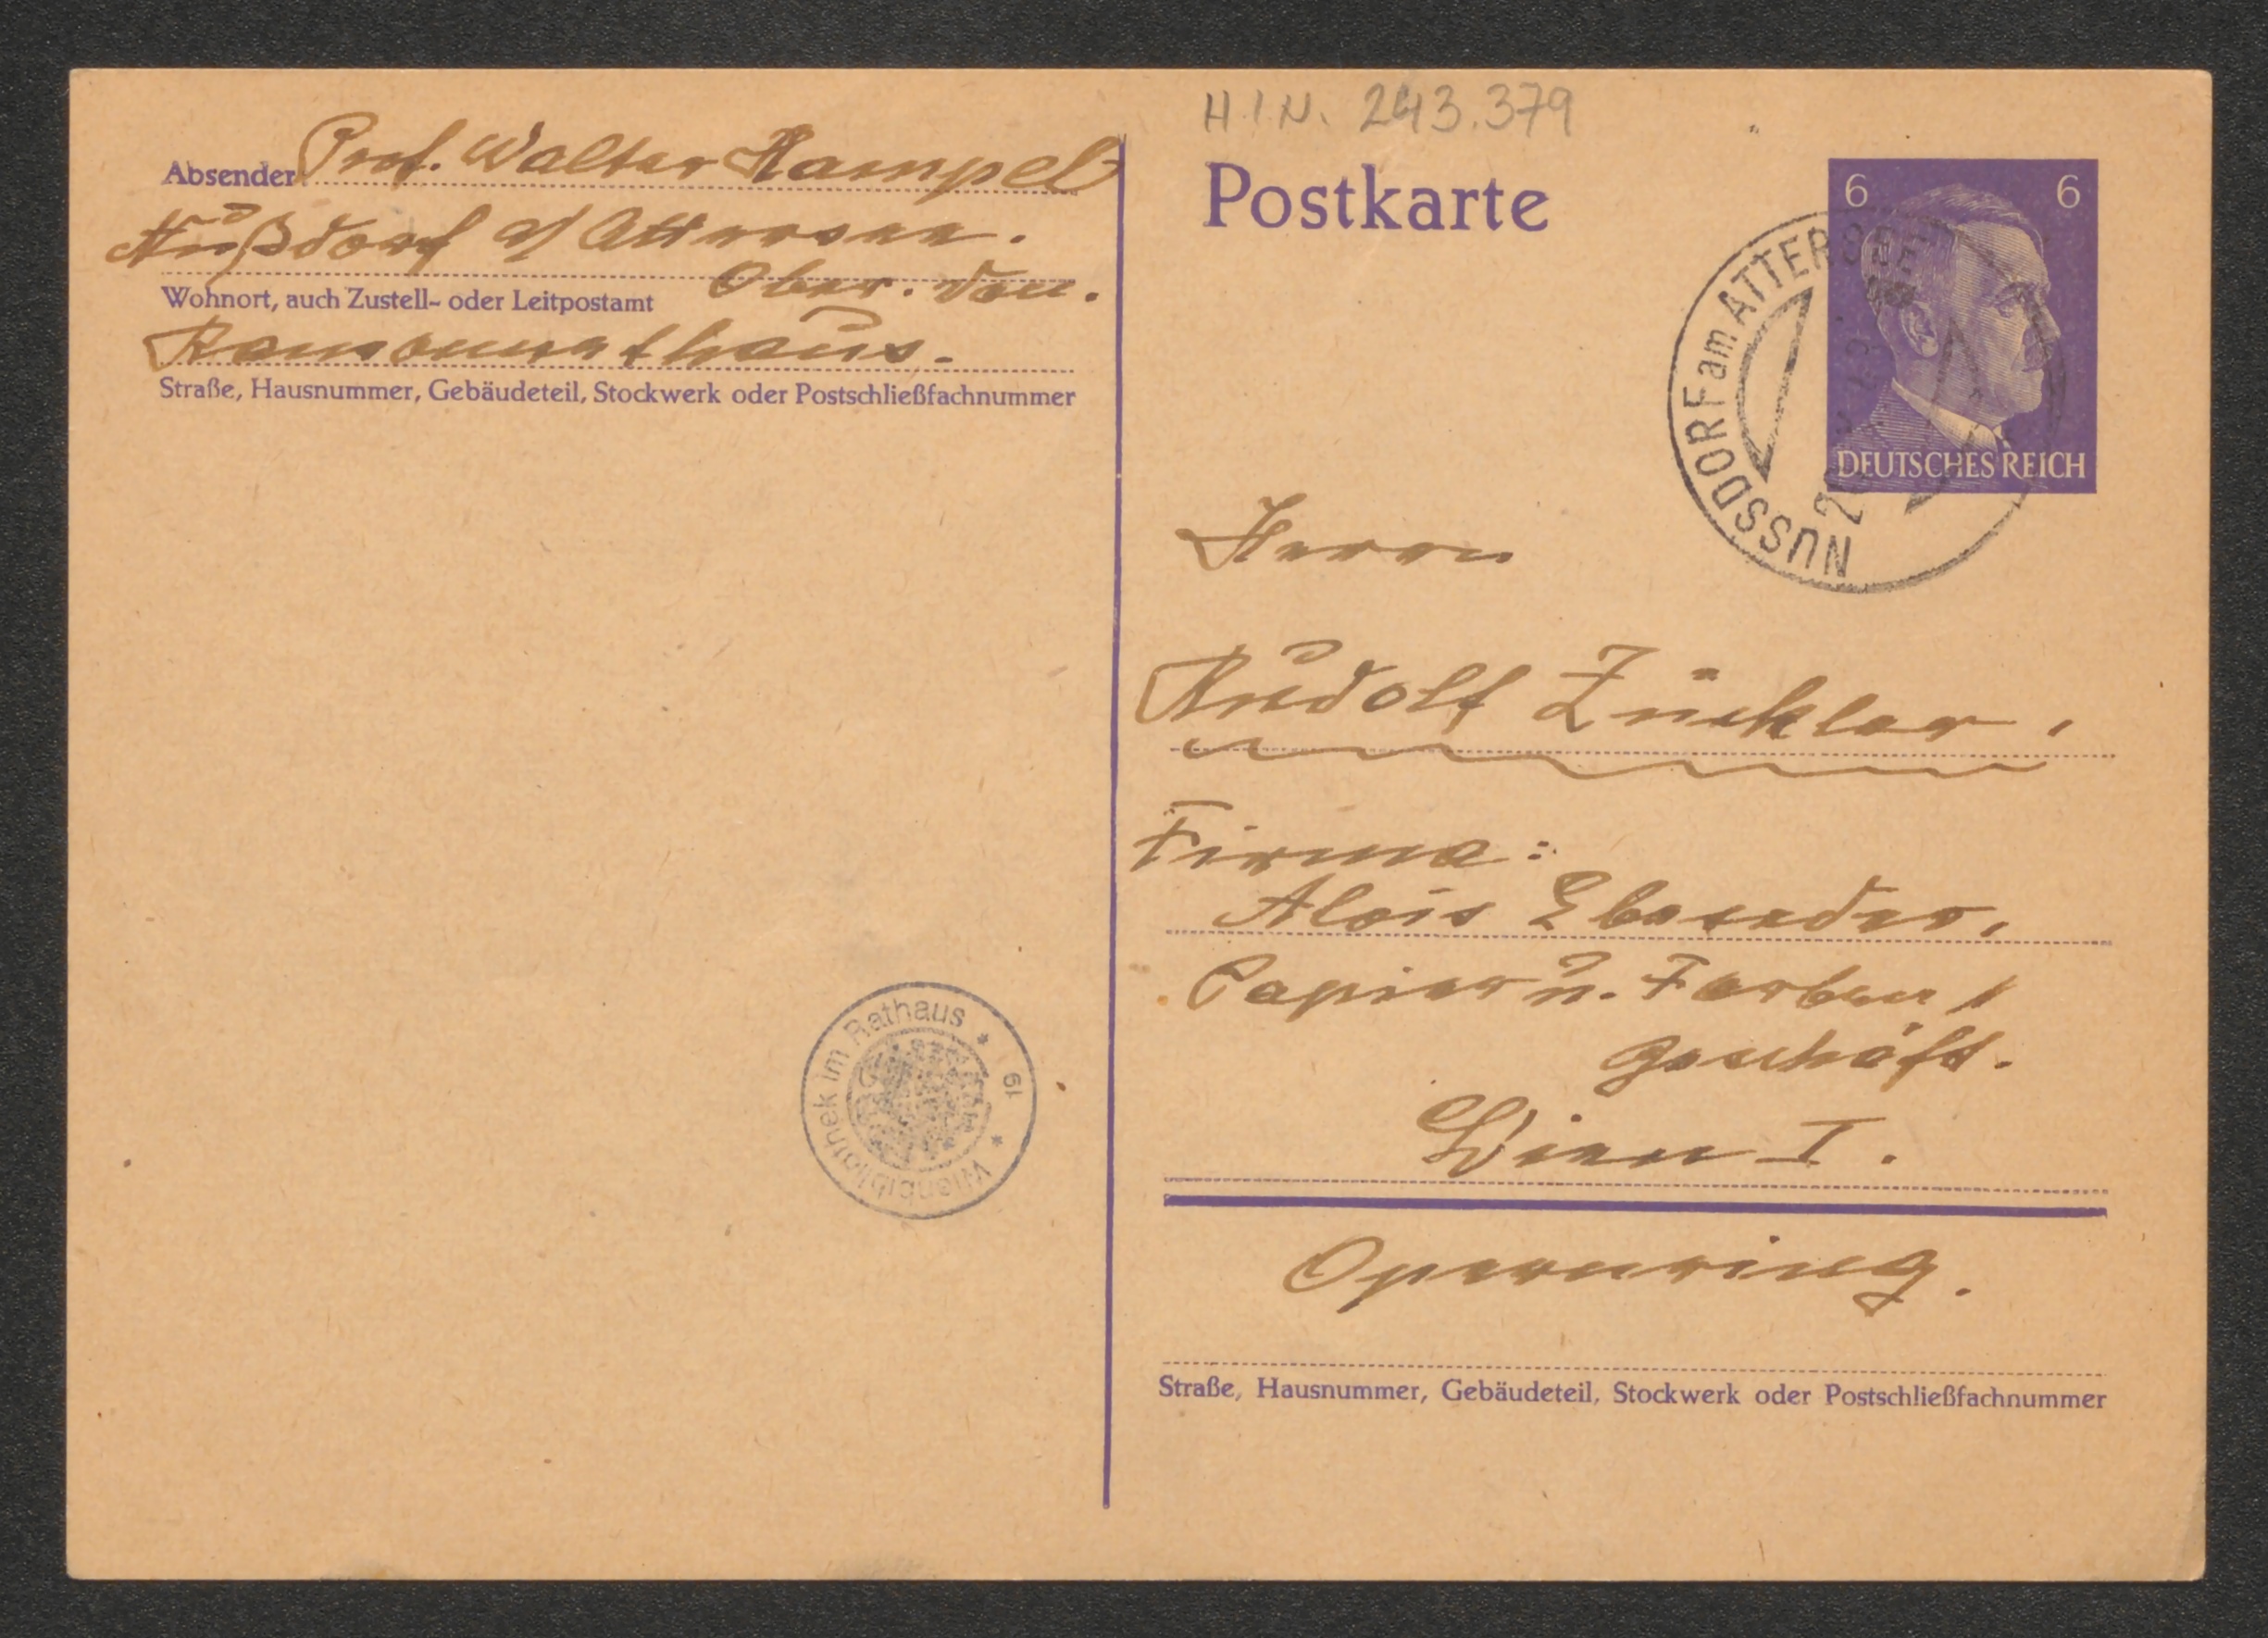 Absender: Prof. Walter Hampel
Nußdorf a/ Attersee.
Ober. Don.
Wohnort, auch Zustell- oder Leitpostamt
Straße, Hausnummer, Gebäudeteil, Stockwerk oder Postschließfachnummer
H.I.N. 243.379
Postkarte
6 6
DEUTSCHES REICH
NUSSDORF am ATTERSEE
Herrn
Rudolf Zückler,
Firma:
Alois Ebeseder,
Papier u. Farben /
geschäft.
Wien I.
Opernring.
Straße, Hausnummer, Gebäudeteil, Stockwerk oder Postschließfachnummer
Wienbibliothek im Rathaus * 19 *